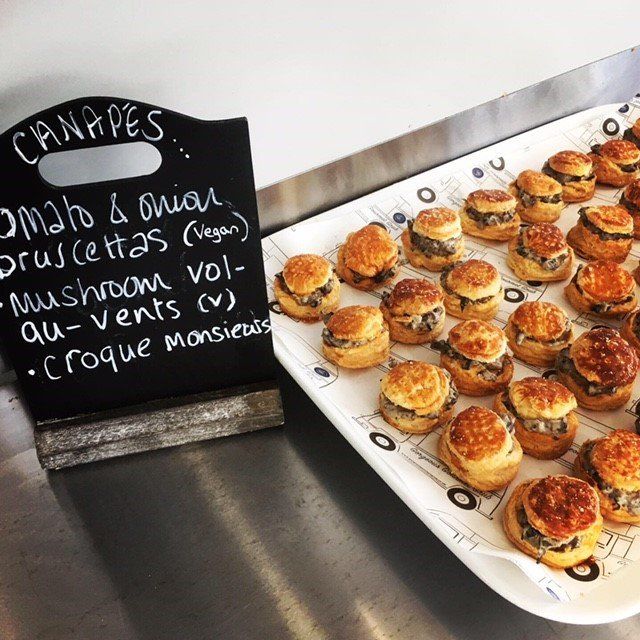 CANAPÉS...
omato & onion
bruscettas (vegan)
• Mushroom vol-
au-vents (v)
• Croque Monsieurs